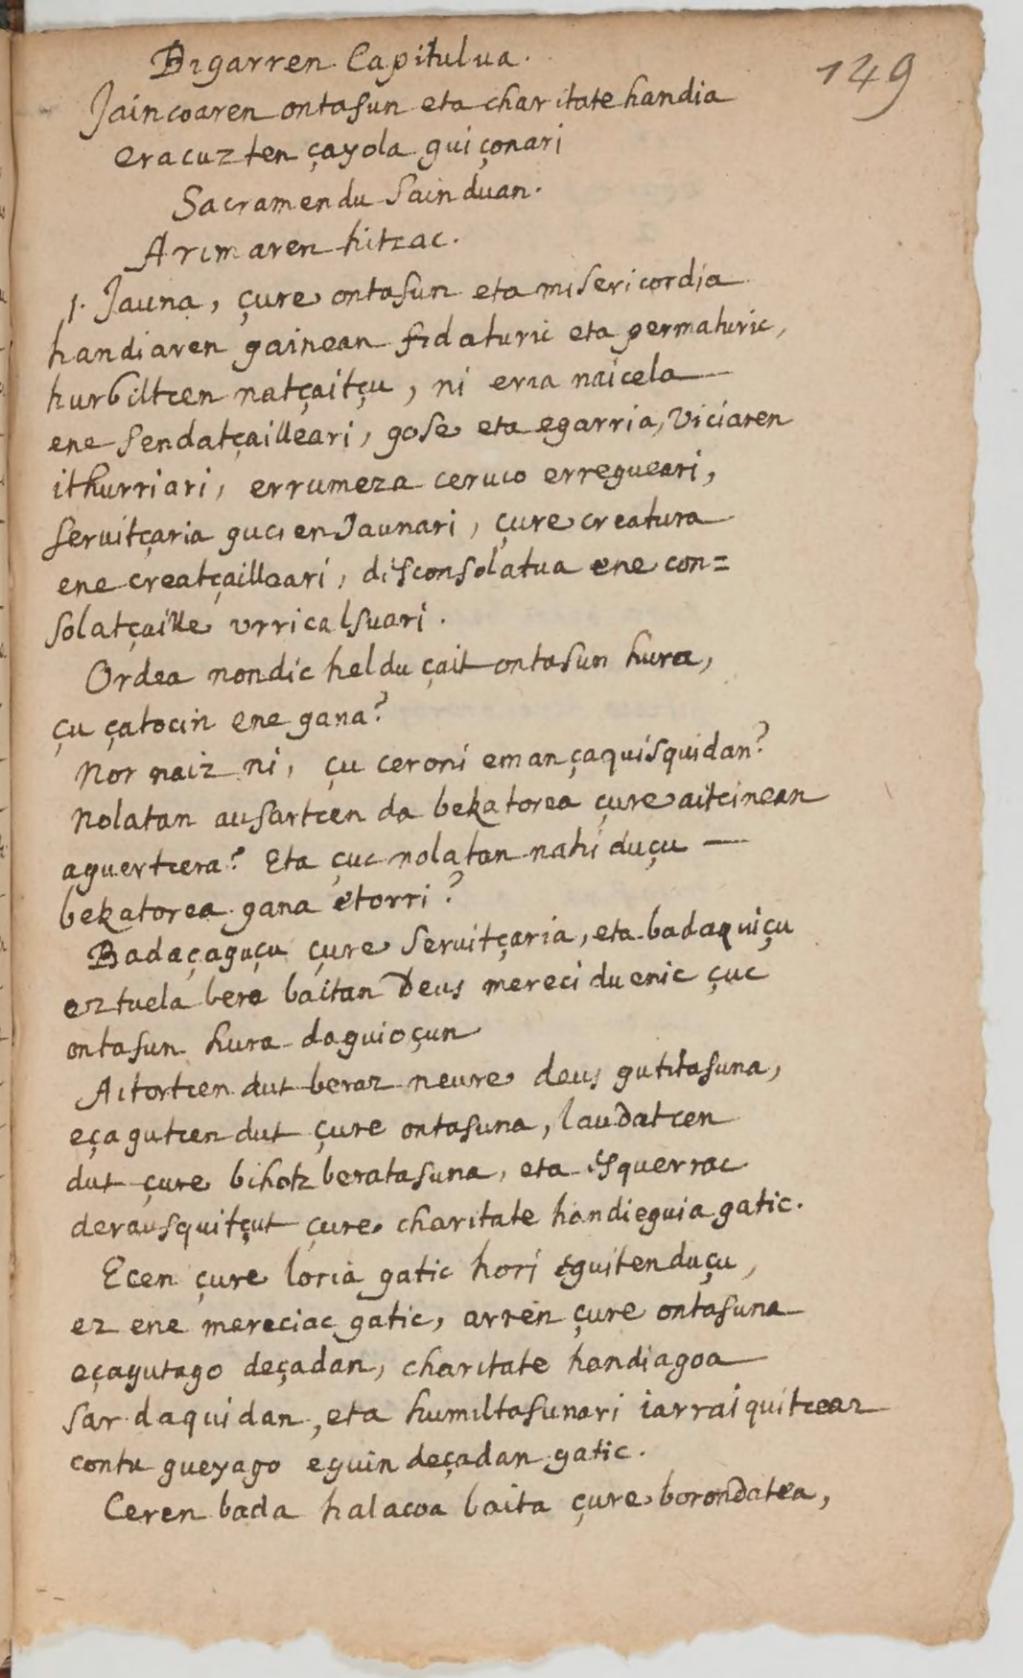 149
Bigarren Capitulua.
Jaincoaren ontasun eta charitate handia
eracuzten çayola guiçonari
Sacramendu Sainduan.
Arimaren hitzac.
1. Jauna, çure ontasun eta misericordia
handiaren gainean fidaturic eta permaturic,
hurbiltcen natçaitçu, ni eria naicela
ene sendatçailleari, gose eta egarria, viciaren
ithurriari, errumeza ceruco erregueari,
seruitçaria gucien Jaunari, çure creatura
ene creatçailleari, disconsolatua ene con=
solatçaille vrricalsuari.
Ordea nondic heldu çait ontasun hura,
çu çatocin ene gana?
Nor naiz ni, çu ceroni eman çaquisquidan?
Nolatan ausartcen da bekatorea çure aitcinean
aguertcera? Eta çuc nolatan nahi duçu —
bekatorea gana etorri?
Badaçaguçu çure seruitçaria, eta badaquiçu
eztuela bere baitan Deus mereci duenic çuc
ontasun hura daguioçun
Aitortcen dut beraz neure deus gutitasuna,
eçagutcen dut çure ontasuna, laudatcen
dut çure bihotz beratasuna, eta isquerrac
derausquitçut çure charitate handieguia gatic.
Ecen çure loria gatic hori eguiten duçu,
ez ene mereciac gatic, arren çure ontasuna
eçagutago deçadan, charitate handiagoa
sar daquidan, eta humiltasunari iarraiquitceaz
contu gueyago eguin deçadan gatic.
Ceren bada halacoa baita çure borondatea,